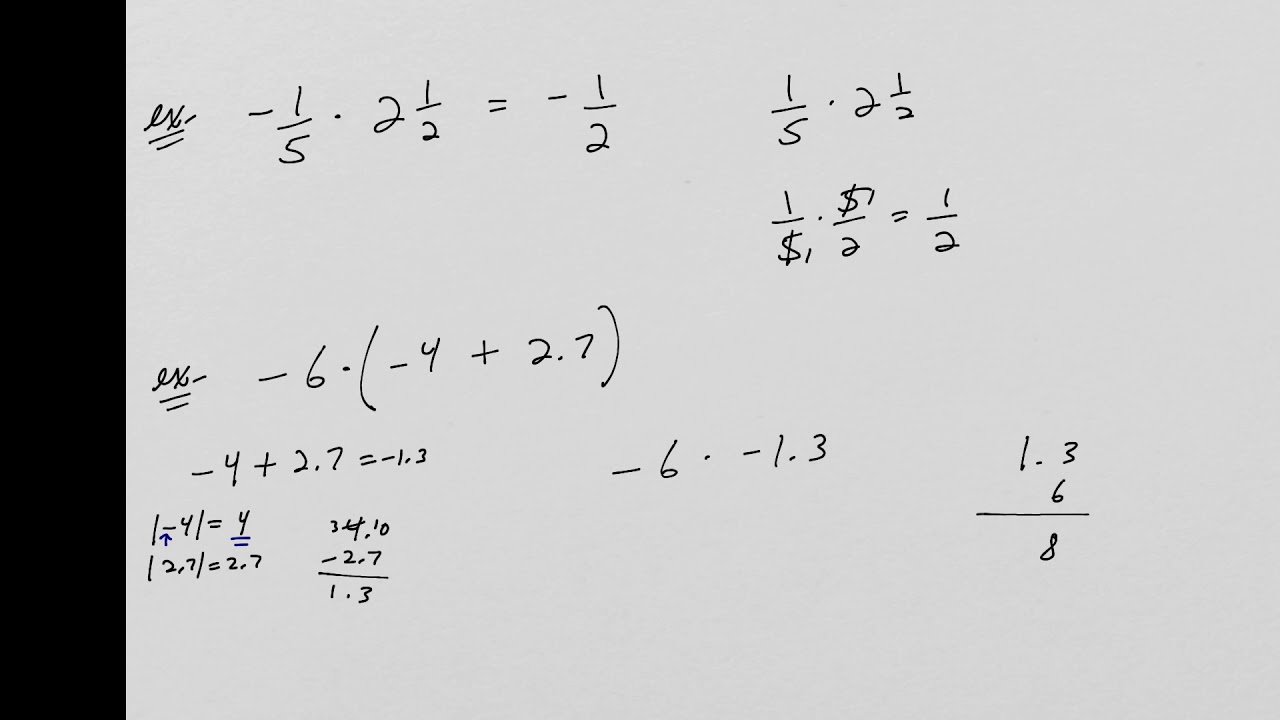 ex. -1/5 · 2 1/2 = -1/2
1/5 · 2 1/2
1/5 1 · 5 1/2 = 1/2
ex. -6·(-4 + 2.7)
-4 + 2.7 = -1.3
|-4| = 4
|2.7| = 2.7
3 4.10
-2.7
1.3
-6 · -1.3
1.3
6
8